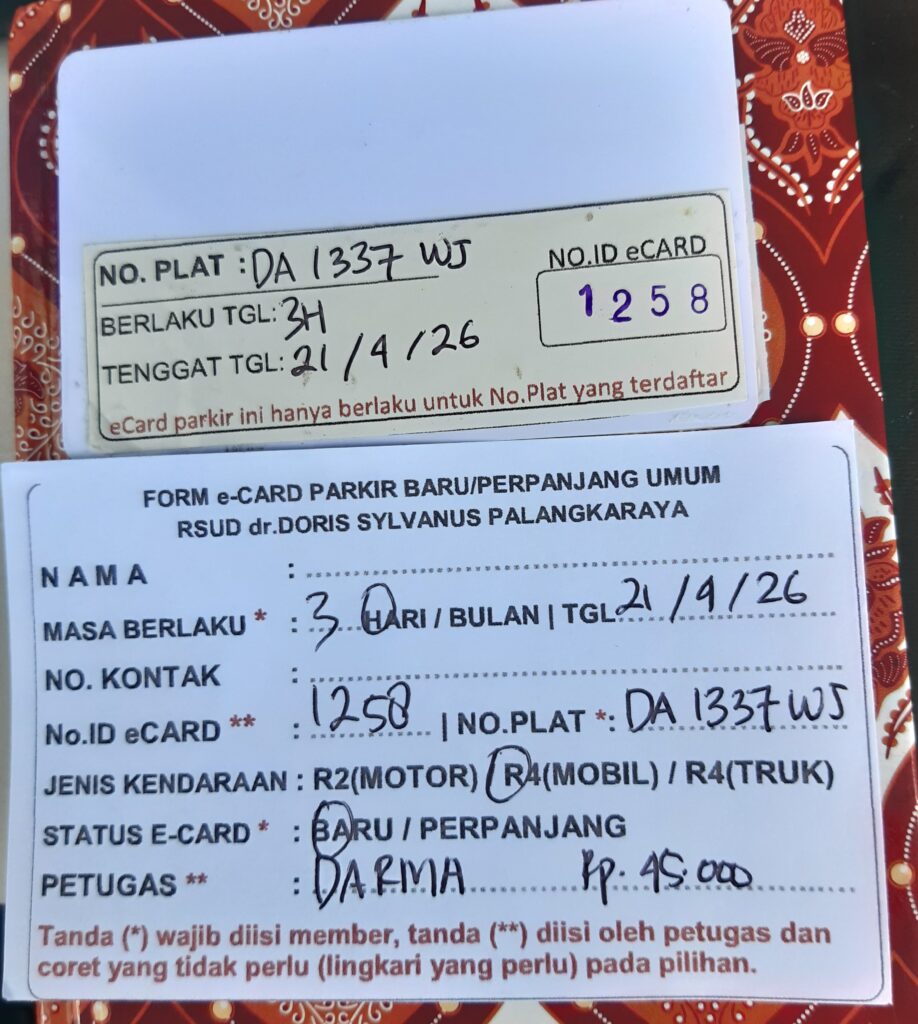 NO. PLAT : DA 1337 WJ
NO.ID eCARD
BERLAKU TGL: 3H
1258
TENGGAT TGL: 21/4/26
eCard parkir ini hanya berlaku untuk No.Plat yang terdaftar
FORM e-CARD PARKIR BARU/PERPANJANG UMUM
RSUD dr.DORIS SYLVANUS PALANGKARAYA
N A M A :
MASA BERLAKU * : 3 HARI / BULAN | TGL 21/4/26
NO. KONTAK :
No.ID eCARD ** : 1258 | NO.PLAT *: DA 1337 WJ
JENIS KENDARAAN : R2(MOTOR) / R4(MOBIL) / R4(TRUK)
STATUS E-CARD * : BARU / PERPANJANG
PETUGAS ** : DARMA Rp. 45.000
Tanda (*) wajib diisi member, tanda (**) diisi oleh petugas dan
coret yang tidak perlu (lingkari yang perlu) pada pilihan.